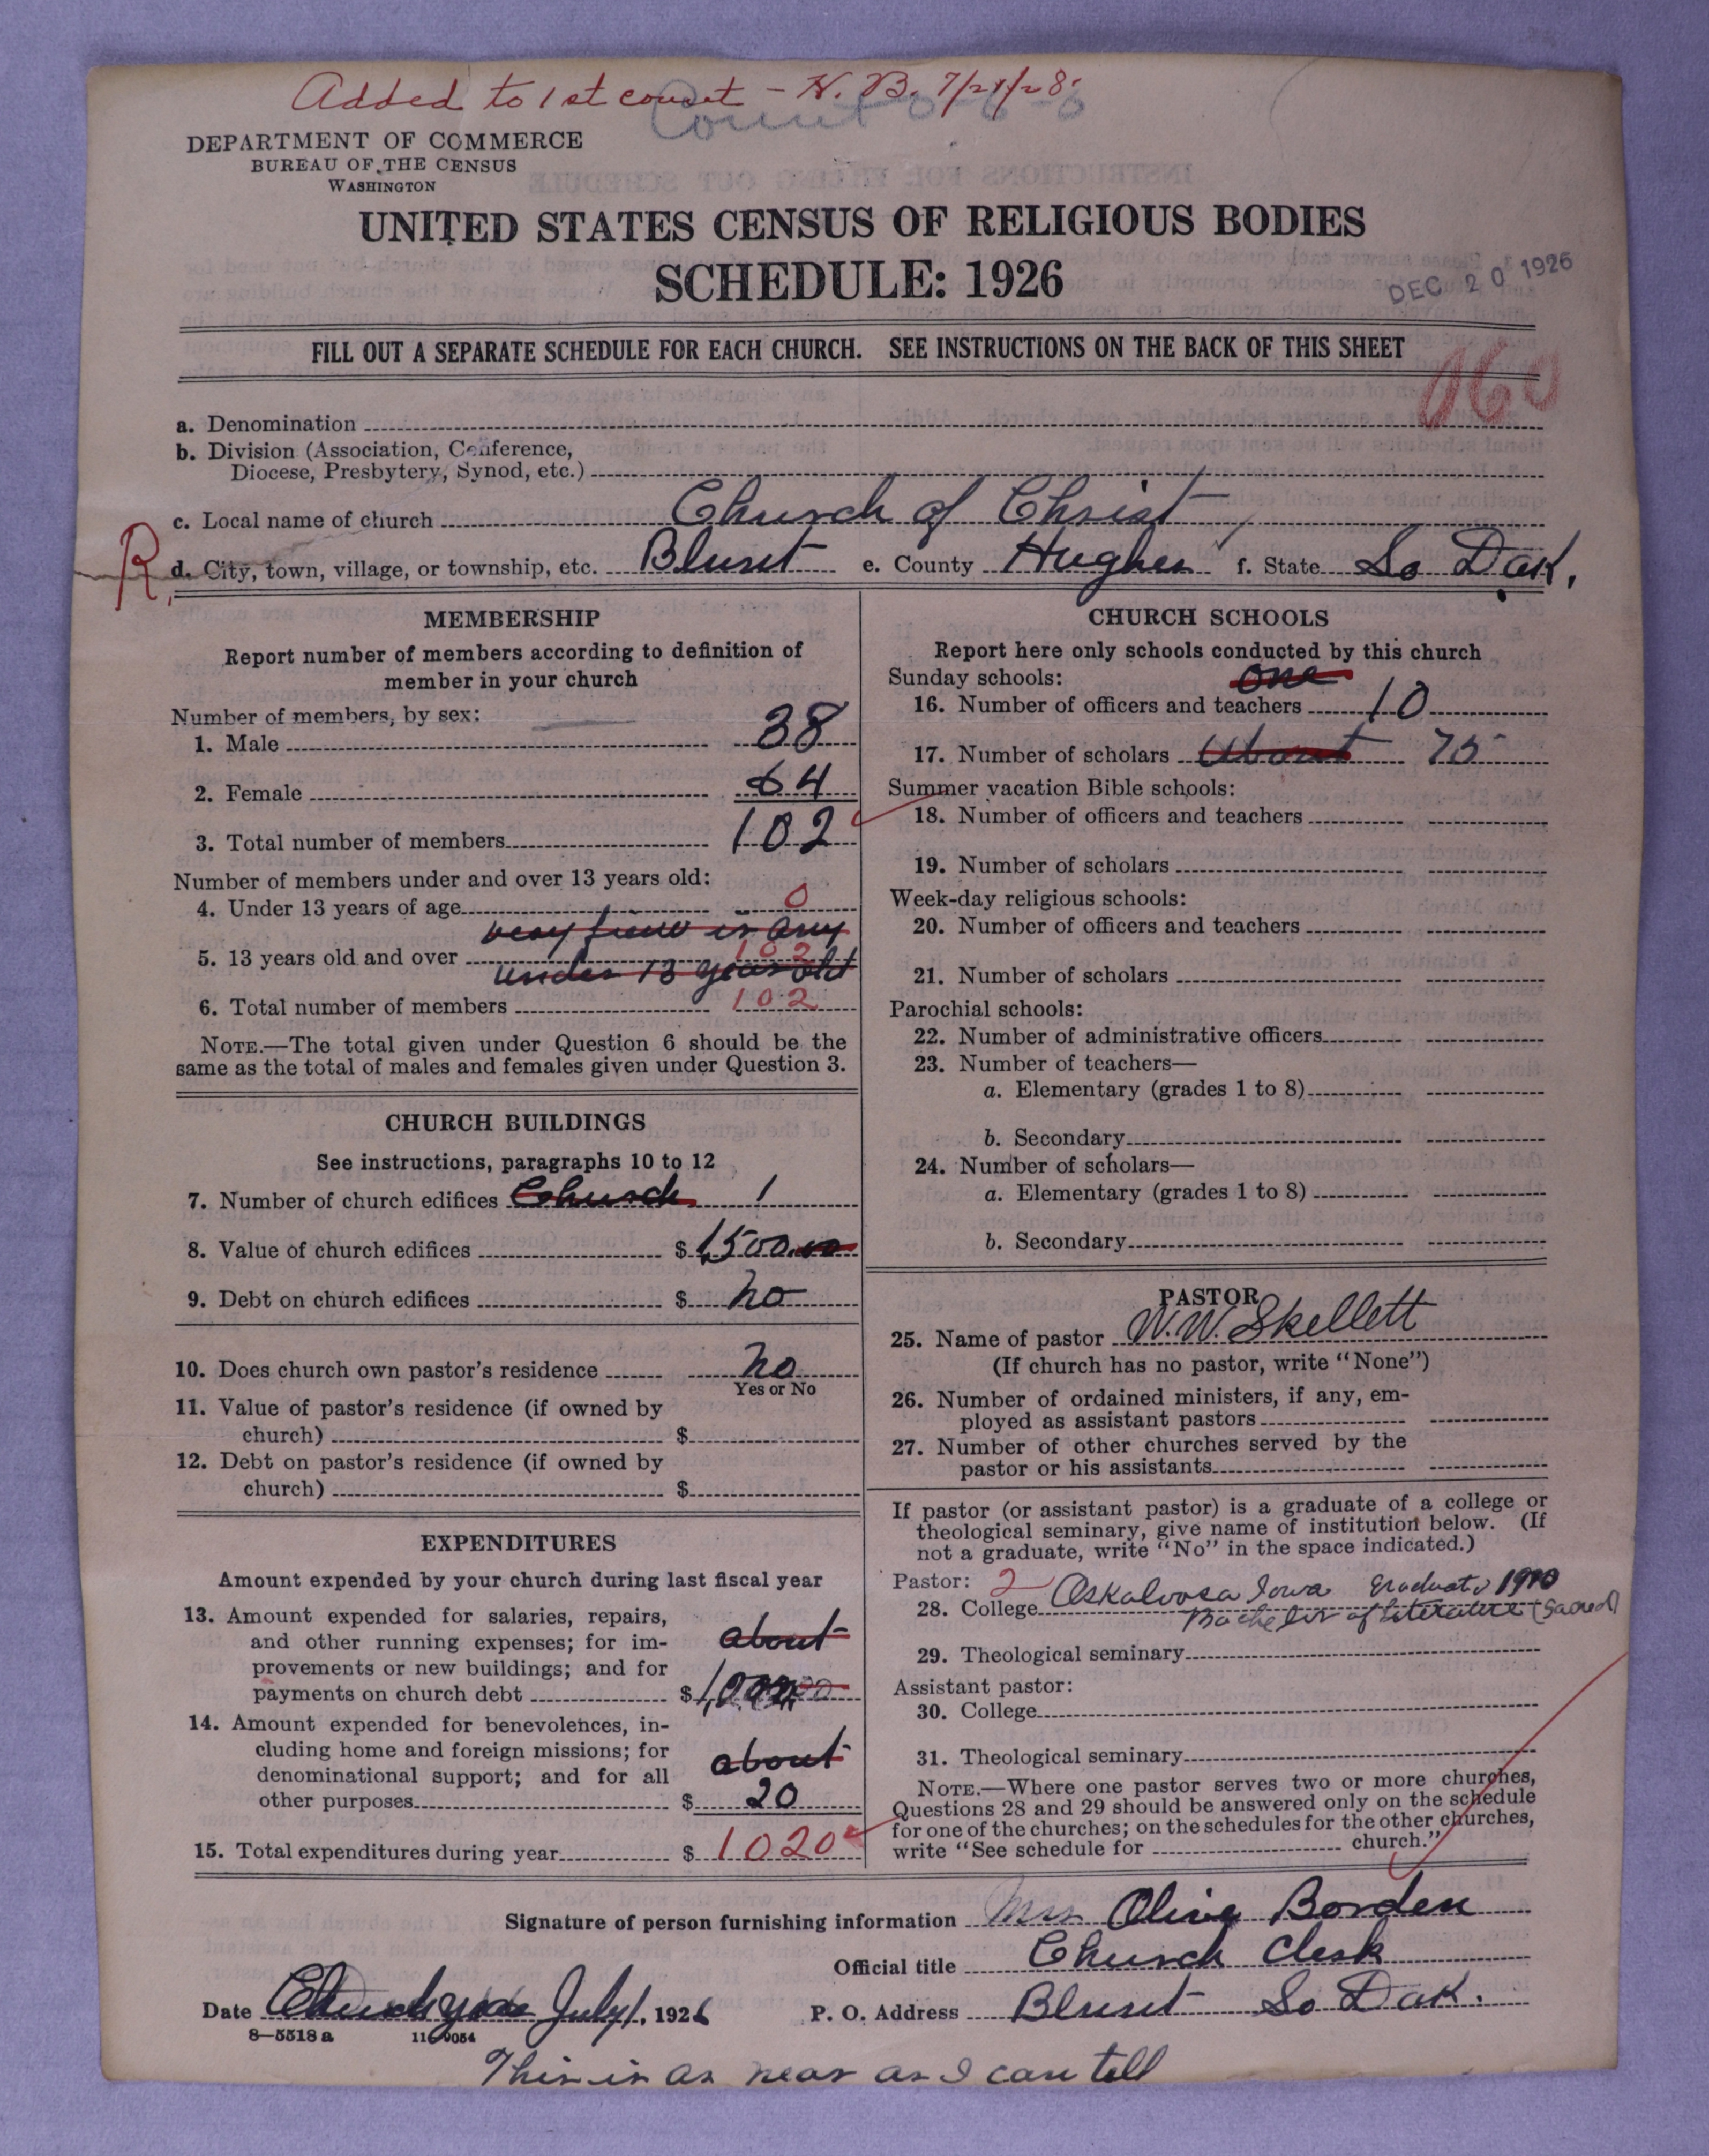 Added to 1st count - H. B. 7/21/28
Count
DEPARTMENT OF COMMERCE
BUREAU OF THE CENSUS
WASHINGTON
UNITED STATES CENSUS OF RELIGIOUS BODIES
SCHEDULE: 1926
DEC 20 1926
FILL OUT A SEPARATE SCHEDULE FOR EACH CHURCH. SEE INSTRUCTIONS ON THE BACK OF THIS SHEET
060
a. Denomination
b. Division (Association, Conference,
Diocese, Presbytery, Synod, etc.)
c. Local name of church Church of Christ
R. d. City, town, village, or township, etc. Blunt e. County Hughes f. State So Dak.
MEMBERSHIP
Report number of members according to definition of
member in your church
Number of members, by sex:
1. Male 38
2. Female 64
3. Total number of members 102
Number of members under and over 13 years old:
4. Under 13 years of age 0
very few if any
5. 13 years old and over 102
under 13 years old
6. Total number of members 102
NOTE.—The total given under Question 6 should be the
same as the total of males and females given under Question 3.
CHURCH BUILDINGS
See instructions, paragraphs 10 to 12
7. Number of church edifices Church 1
8. Value of church edifices $ 1,500.00
9. Debt on church edifices $ no
10. Does church own pastor's residence no
Yes or No
11. Value of pastor's residence (if owned by
church) $
12. Debt on pastor's residence (if owned by
church) $
EXPENDITURES
Amount expended by your church during last fiscal year
13. Amount expended for salaries, repairs,
and other running expenses; for im- about
provements or new buildings; and for
payments on church debt $ 1,000.00
14. Amount expended for benevolences, in-
cluding home and foreign missions; for about
denominational support; and for all
other purposes $ 20
15. Total expenditures during year $ 1020
CHURCH SCHOOLS
Report here only schools conducted by this church
Sunday schools: one
16. Number of officers and teachers 10
17. Number of scholars About 75
Summer vacation Bible schools:
18. Number of officers and teachers
19. Number of scholars
Week-day religious schools:
20. Number of officers and teachers
21. Number of scholars
Parochial schools:
22. Number of administrative officers
23. Number of teachers—
a. Elementary (grades 1 to 8)
b. Secondary
24. Number of scholars—
a. Elementary (grades 1 to 8)
b. Secondary
PASTOR
25. Name of pastor W. W. Skellett
(If church has no pastor, write "None")
26. Number of ordained ministers, if any, em-
ployed as assistant pastors
27. Number of other churches served by the
pastor or his assistants
If pastor (or assistant pastor) is a graduate of a college or
theological seminary, give name of institution below. (If
not a graduate, write "No" in the space indicated.)
Pastor: 2
28. College Oskaloosa Iowa Graduate 1900
Bachelor of Literature (Sacred)
29. Theological seminary
Assistant pastor:
30. College
31. Theological seminary
NOTE.—Where one pastor serves two or more churches,
Questions 28 and 29 should be answered only on the schedule
for one of the churches; on the schedules for the other churches,
write "See schedule for church."
Signature of person furnishing information Mrs Olive Borden
Official title Church Clerk
Date Church year July 1, 1926 P. O. Address Blunt So Dak.
8—5518 a
This is as near as I can tell